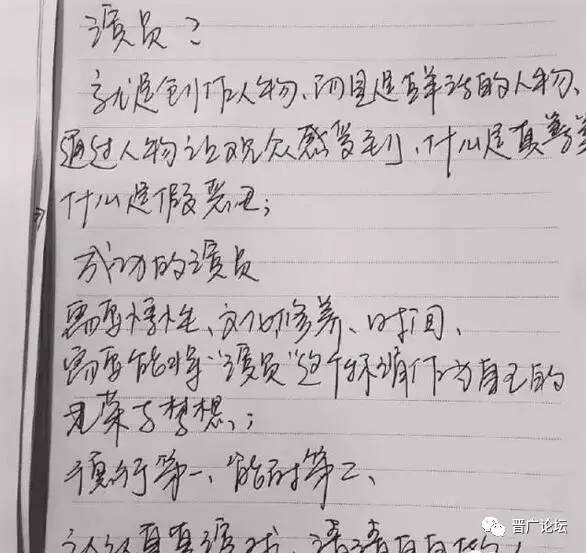 演员？
就是创作人物、而且是鲜活的人物、
通过人物让观众感受到、什么是真善美
什么是假恶丑；
成功的演员
需要悟性、文化修养、时间、
需要能将“演员”这个称谓作为自己的
光荣与梦想、；
德行第一、能耐第二、
认认真真演戏、清清白白做
晋广论坛